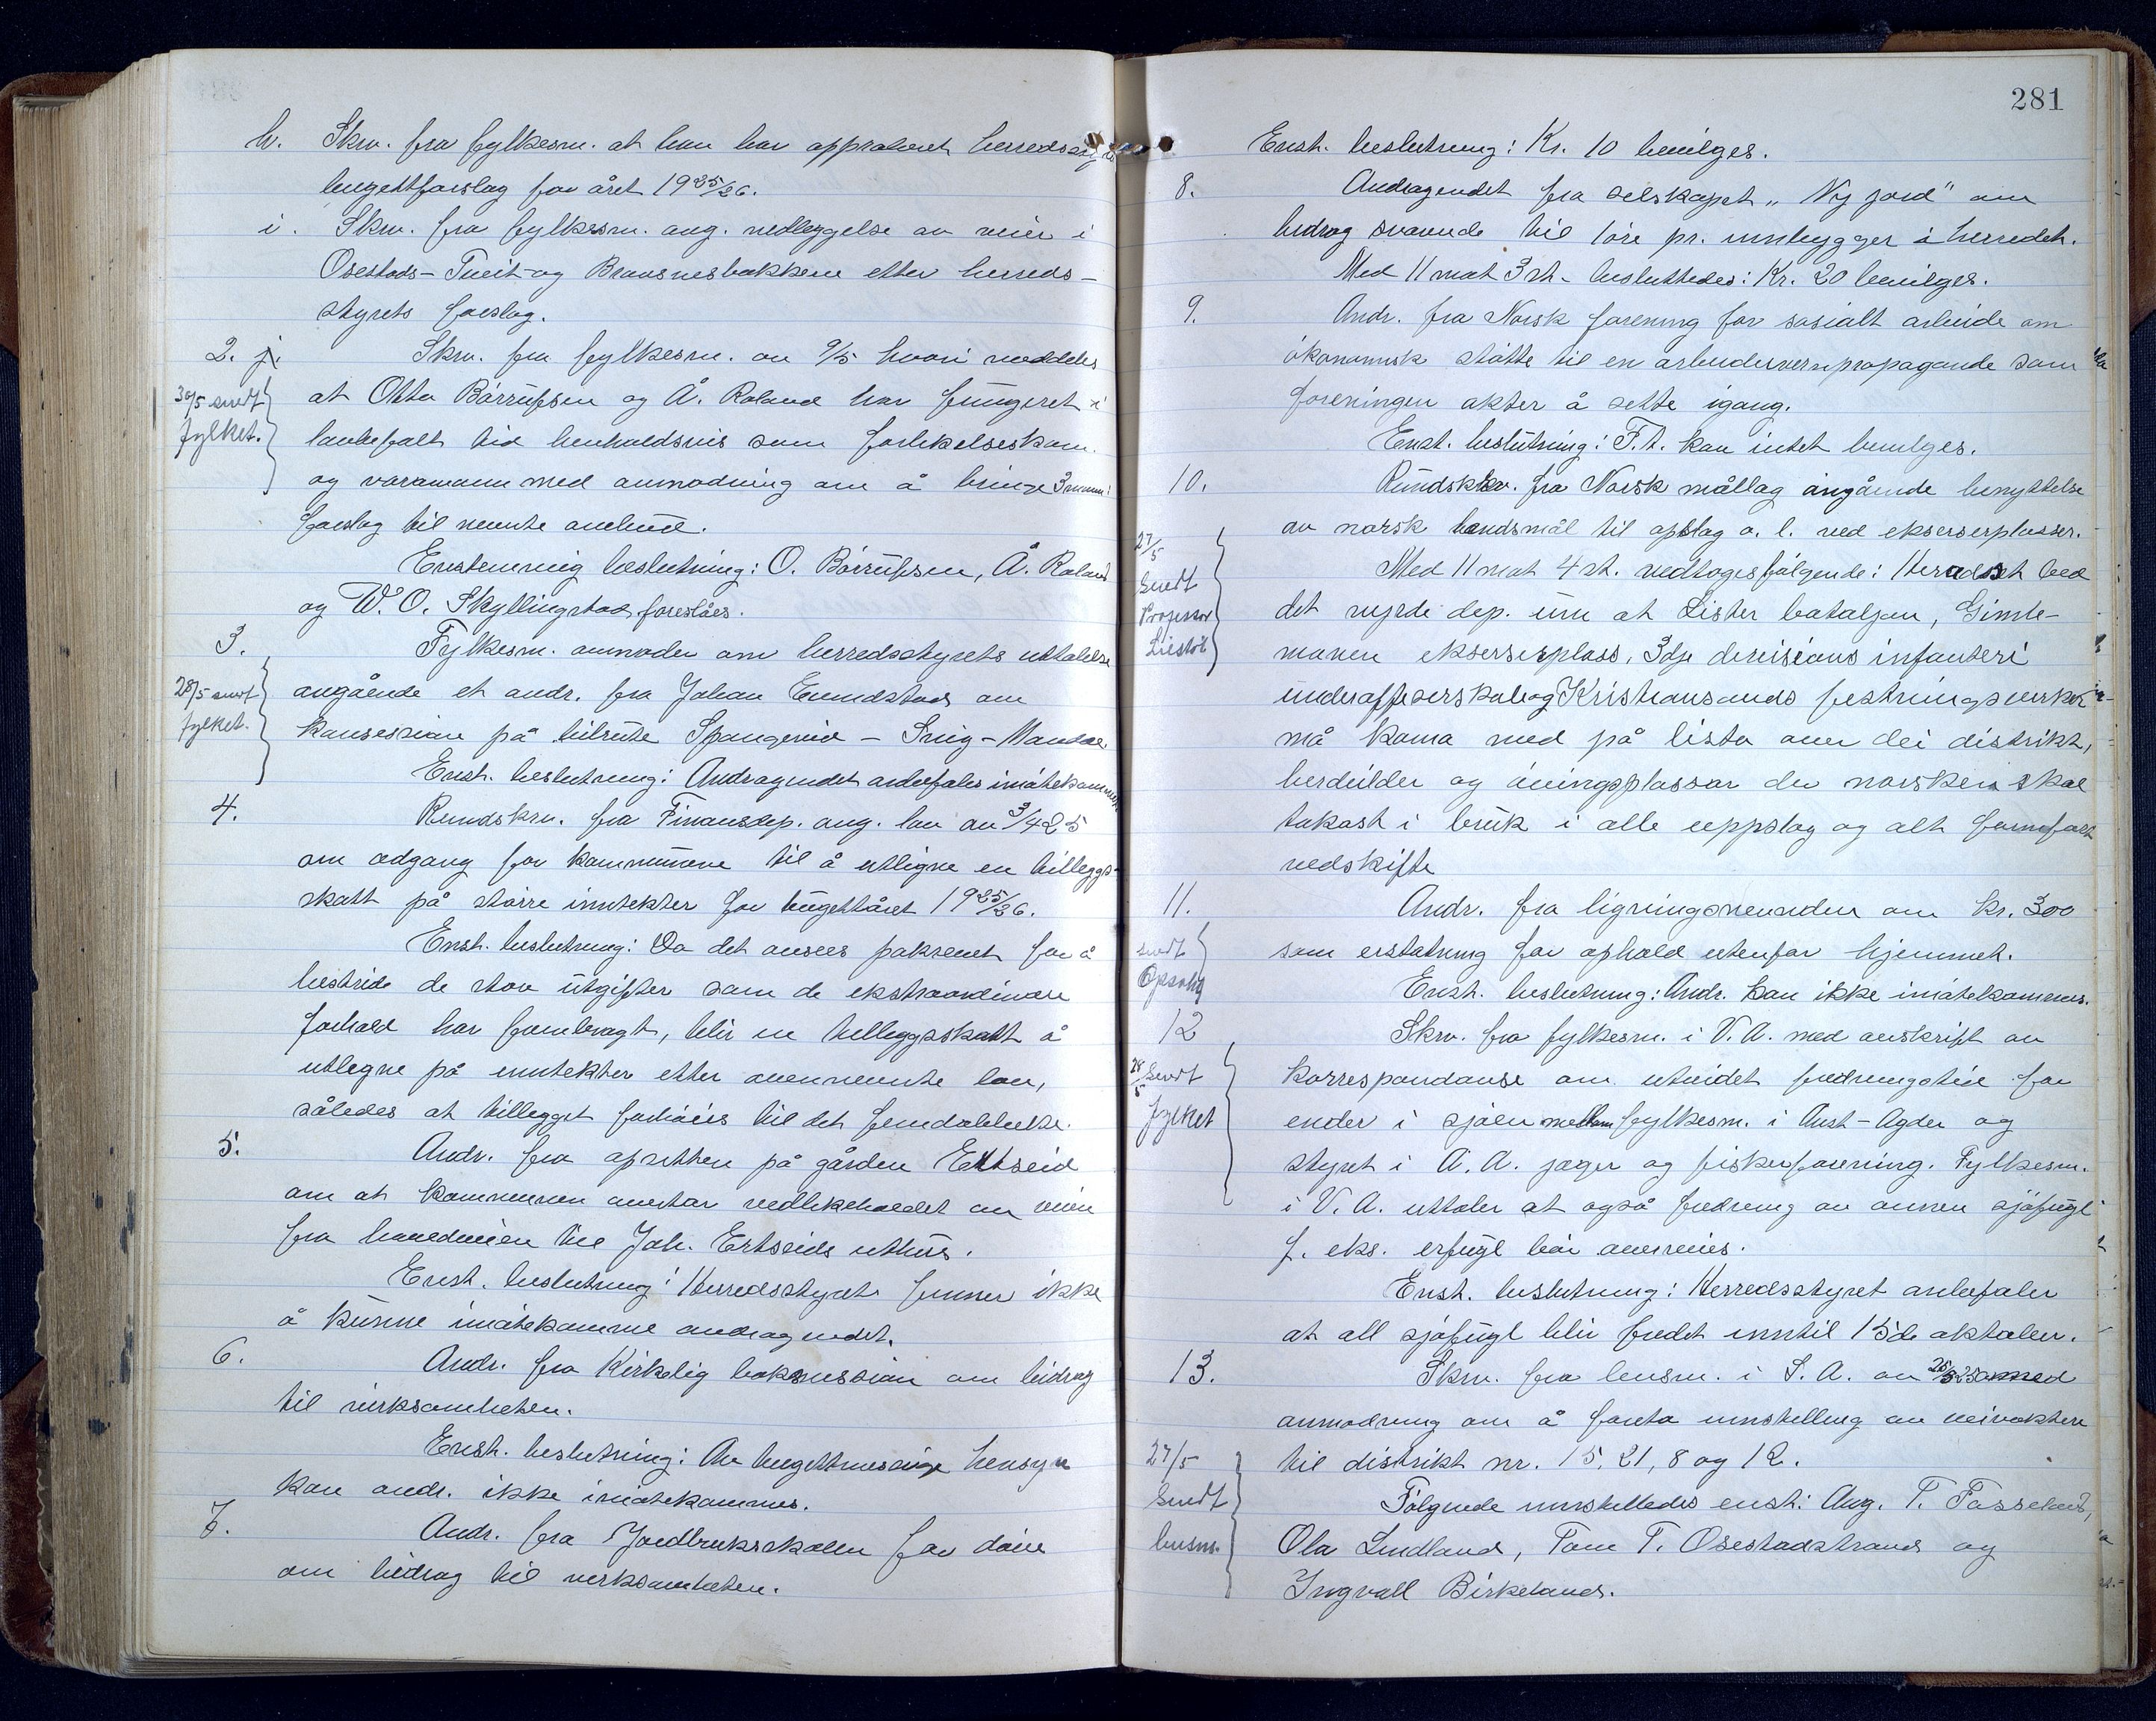 h. Skriv. fra fylkesm. at han har approbert herredets
bugettforslag for året 1925/26.
i. Skriv. fra fylkesm. ang. nedleggelse av veier i
Osestads-Tveit- og Bransnesbakkene etter herreds-
styrets forslag.
2. j. Skriv. fra fylkesm. av 9/5 hvori meddeles
30/5 sendt fylket. at Otto Bårrufsen og Å. Roland har fungeret i
lovbefalt tid henholdsvis som forlikelseskom.
og varamann med anmodning om å bringe 3 menn i
forslag til nevnte ombud.
Enstemmig beslutning: O. Bårrufsen, Å. Roland
og W. O. Skyllingstad foreslåes.
3. Fylkesm. anmoder om herredsstyrets uttalelse
28/5 sendt fylket. angående et andr. fra Johan Eiundstad om
konsesjon på bilrute Spangereid - Snig - Mandal.
Enst. beslutning: Andragendet anbefales imøtekommet.
4. Rundskriv. fra Finansdep. ang. lov av 3/4 25
om adgang for kommunene til å utligne en tilleggs-
skatt på større inntekter for bugettåret 1925/26.
Enst. beslutning: Da det ansees påkrevet for å
bestride de store utgifter som de ekstraordinære
forhold har frembragt, blir en tilleggsskatt å
utlegne på inntekter etter ovennevnte lov,
således at tillegget forhøies til det femdobbelte.
5. Andr. fra opsitterne på gården Ertseid
om at kommunen overtar vedlikeholdet av veien
fra hovedveien til Joh. Ertseids uthus.
Enst. beslutning: Herredsstyret finner ikke
å kunne imøtekomme andragendet.
6. Andr. fra Kirkelig bokmission om bidrag
til virksomheten.
Enst. beslutning: Av bugettmessige hensyn
kan andr. ikke imøtekommes.
7. Andr. fra Jordbruksskolen for døve
om bidrag til virksomheten.
281
Enst. beslutning: Kr. 10 bevilges.
8. Andragendet fra selskapet "Ny jord" om
bidrag svarende til 1 øre pr. innbygger i herredet.
Med 11 mot 3 st. besluttedes: Kr. 20 bevilges.
9. Andr. fra Norsk forening for sosialt arbeide om
økonomisk støtte til en arbeidervernpropagande som
foreningen akter å sette igang.
Enst. beslutning: F.t. kan intet bevilges.
10. Rundskriv. fra Norsk mållag angående benyttelse
av norsk landsmål til opslag o. l. ved ekserserplasser.
27/5 Sendt Professor Liestøl Med 11 mot 4 st. vedtoges følgende: Heradset bed
det vyrde dep. um at Lister bataljon, Gimle-
moen ekserserplass, 3dje divisions infanteri
underoffiserskole og Kristiansands festningsverker
må koma med på lista over dei distrikt,
herdeilder og øvingsplassar der norsken skal
takast i bruk i alle uppslag og alt formfast
vedskifte
11. Andr. fra ligningsnevnden om kr. 300
som erstatning for ophold utenfor hjemmet.
sendt Enst. beslutning: Andr. kan ikke imøtekommes.
12 Skriv. fra fylkesm. i V. A. med avskrift av
28/5 Sendt fylket korrespondanse om utvidet fredningstid for
ender i sjøen mellem fylkesm. i Aust-Agder og
styret i A. A. jæger og fiskerforening. Fylkesm.
i V. A. uttaler at også fredning av annen sjøfugl
f. eks. erfugl bør overveies.
Enst. beslutning: Herredsstyret anbefaler
at all sjøfugl blir fredet inntil 15de oktober.
13. Skriv. fra lensm. i S. A. av med
anmodning om å foreta innstilling av veivoktere
27/5 Sendt lensm. til distrikt nr. 15, 21, 8 og 12.
Følgende innstilledes enst: Aug. T. Tasseland,
Ola Lindland, Tom T. Osestadstrand og
Ingvall Birkeland.